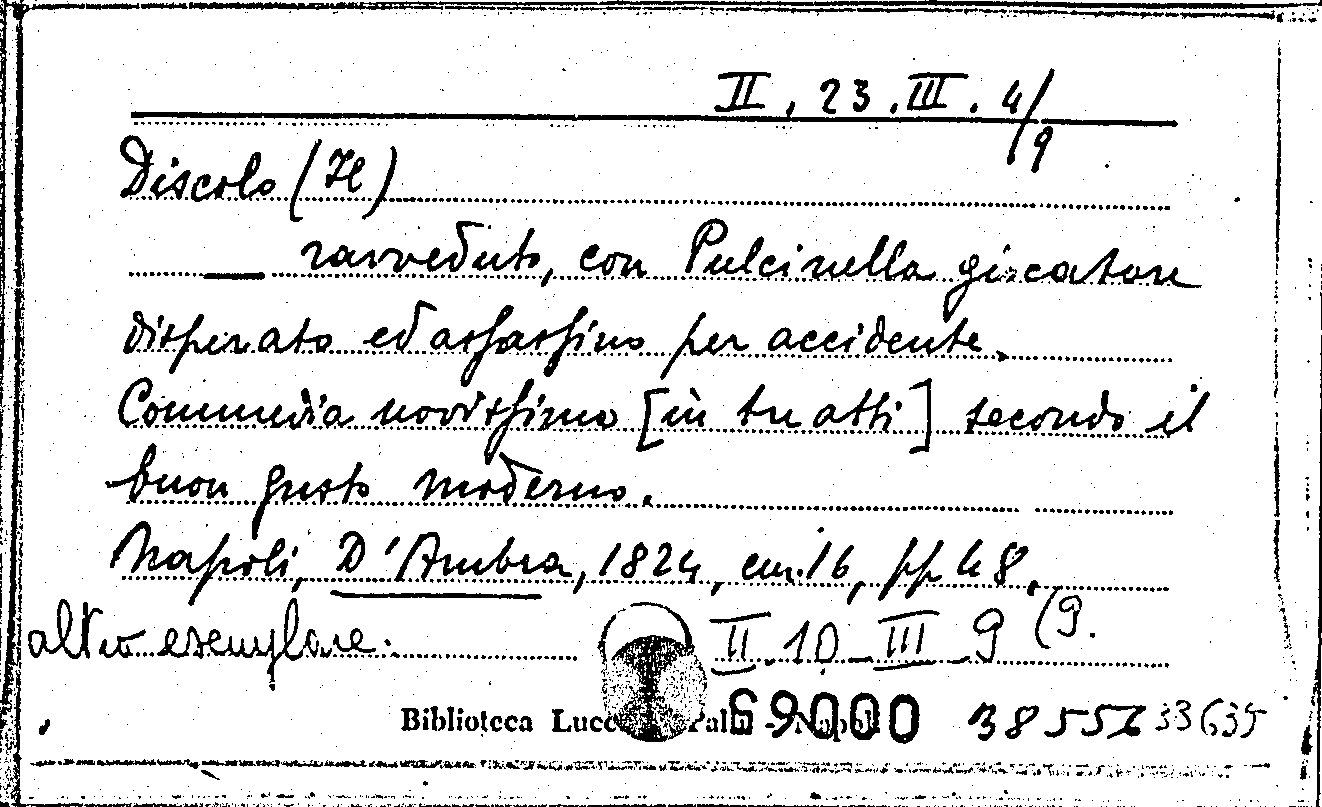 II. 23. III. 4/9
Discolo (Il)
— ravveduto, con Pulcinella giocatore
disperato ed assassino per accidente.
Commedia novissima [in tre atti] secondo il
buon gusto moderno.
Napoli, D'Ambra, 1824, cm. 16, pp 48.
altro esemplare: II 10 III 9 (9.
Biblioteca Lucc Pal 69000 38556 33635